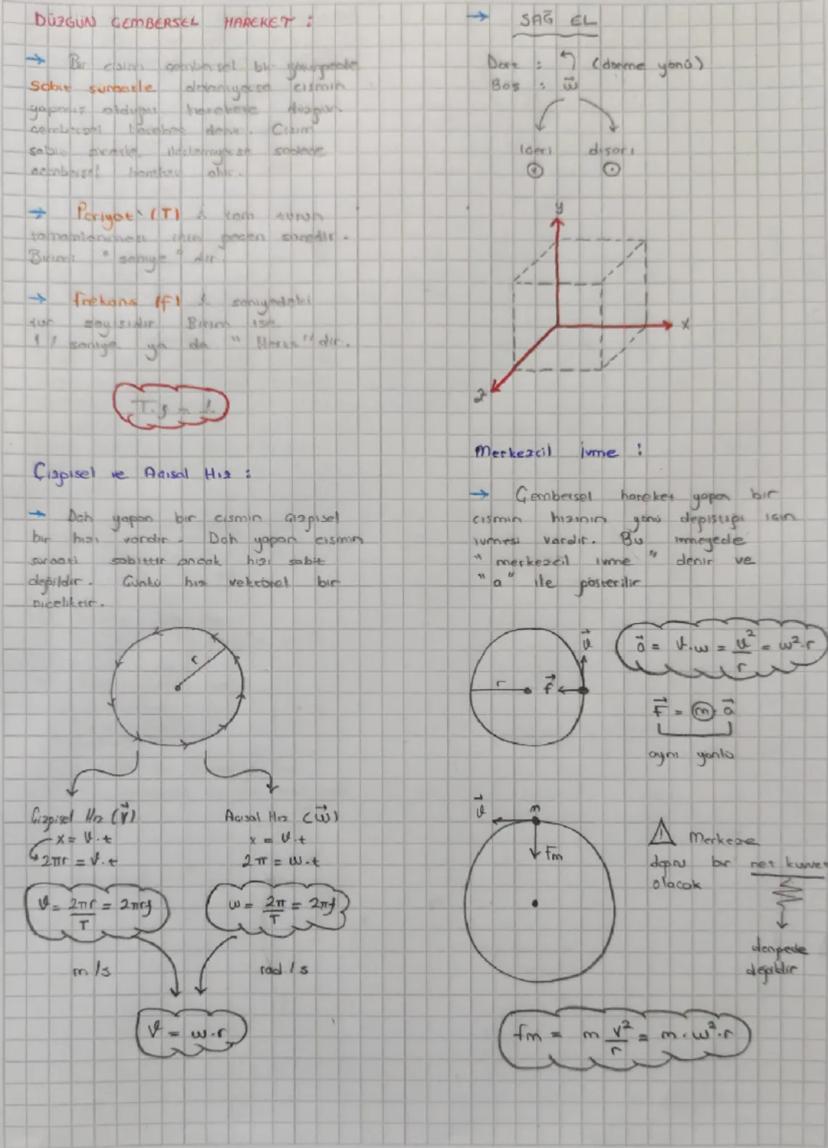 DÜZGÜN ÇEMBERSEL HAREKET :
→ Bir cisim çembersel bir yörüngede
Sabit süratle dolanıyorsa cismin
yapmış olduğu harekete düzgün
çembersel hareket denir. Cisim
sabit süratle dolanmıyorsa sadece
çembersel hareket olur.
→ Periyot (T) : tam turun
tamamlanması için geçen süredir.
Birimi "saniye" dir
→ frekans (f) : saniyedeki
tur sayısıdır Birimi ise
1/saniye ya da "Hertz" dir.
T.f = 1
Çizgisel ve Açısal Hız :
→ Dch yapan bir cismin çizgisel
bir hızı vardır. Dch yapan cismin
sürati sabittir ancak hızı sabit
değildir. Çünkü hız vektörel bir
niceliktir.
r
Çizgisel Hız (v⃗)
x = v.t
2πr = v.t
v = 2πr/T = 2πrf
m/s
Açısal Hız (w⃗)
x = v.t
2π = w.t
w = 2π/T = 2πf
rad/s
v = w.r
→ SAĞ EL
Dört : ↰ (dönme yönü)
Baş : w⃗
içeri dışarı
y
x
z
Merkezcil ivme :
→ Çembersel hareket yapan bir
cismin hızının yönü değiştiği için
ivmesi vardır. Bu ivmeyede
"merkezcil ivme" denir ve
"a" ile gösterilir
r
f⃗
v⃗
a⃗ = v.w = v²/r = w².r
F⃗ = m a⃗
aynı yönlü
v⃗
m
Fm
⚠ Merkeze
doğru bir net kuvvet
olacak
dengede
değildir
fm = m v²/r = m.w².r